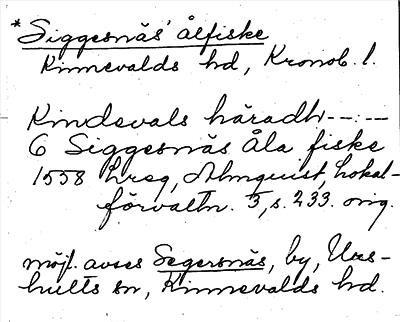 *Siggesnäs' ålfiske
Kinnevalds hd, Kronob. l.
Kindevals häradh--:--
6 Siggesnäs Åla fiske
1558 hreg, Almquist, Lokal-
förvaltn. 3, s. 233. orig.
möjl. avses Segersnäs, by, Urs-
hults sn, Kinnevalds hd.